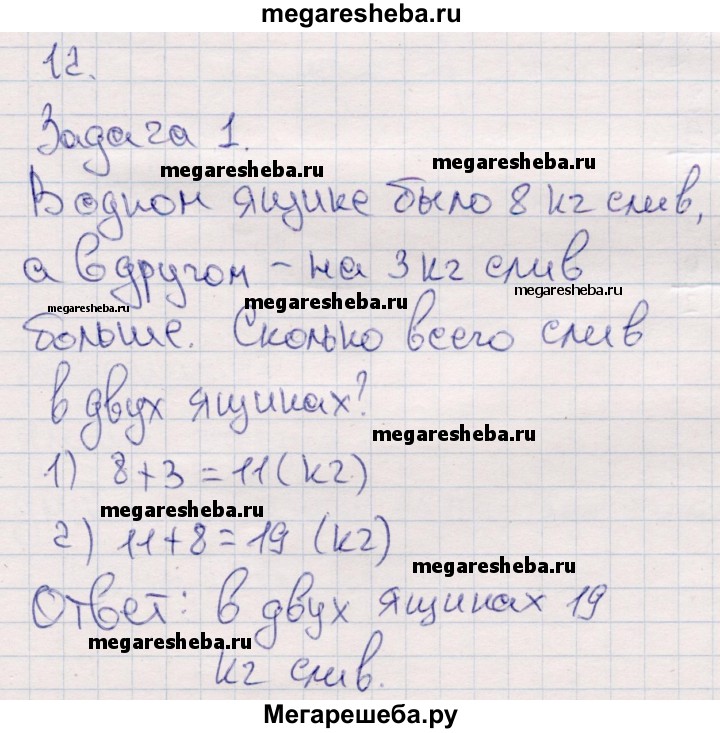 megaresheba.ru
12.
Задача 1.
megaresheba.ru
megaresheba.ru
В одном ящике было 8 кг слив,
а в другом – на 3 кг слив
megaresheba.ru
megaresheba.ru
megaresheba.ru
больше. Сколько всего слив
в двух ящиках?
megaresheba.ru
1) 8+3=11(кг)
megaresheba.ru
2) 11+8=19 (кг)
megaresheba.ru
Ответ: в двух ящиках 19
megaresheba.ru
кг слив.
Мегарешеба.ру